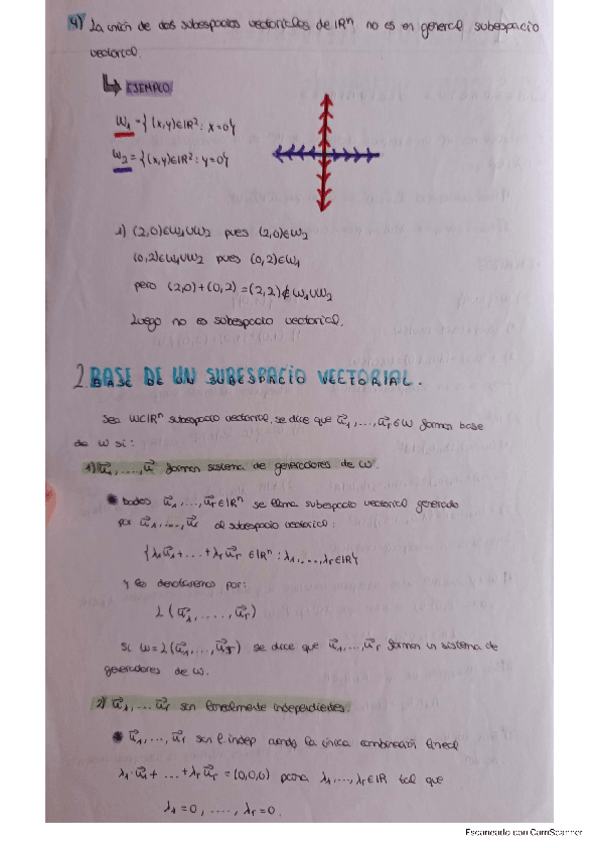 4) La unión de dos subespacios vectoriales de IRⁿ no es en general subespacio
vectorial.
EJEMPLO
W₁ = { (x,y)∈IR² : x=0}
W₂ = { (x,y)∈IR² : y=0}
1) (2,0)∈W₁∪W₂ pues (2,0)∈W₂
(0,2)∈W₁∪W₂ pues (0,2)∈W₁
pero (2,0)+(0,2)=(2,2)∉W₁∪W₂
Luego no es subespacio vectorial.
2. BASE DE UN SUBESPACIO VECTORIAL.
Sea W⊂IRⁿ subespacio vectorial, se dice que u⃗₁,...,u⃗ᵣ∈W forman base
de W si:
1) u⃗₁,...,u⃗ forman sistema de generadores de W.
• Dados u⃗₁,...,u⃗ᵣ∈IRⁿ se llama subespacio vectorial generado
por u⃗₁,...,u⃗ᵣ al subespacio vectorial:
{λ₁u⃗₁+...+λᵣu⃗ᵣ ∈IRⁿ : λ₁,...,λᵣ∈IR}
y lo denotaremos por:
L(u⃗₁,.....,u⃗ᵣ)
Si W=L(u⃗₁,...,u⃗ᵣ) se dice que u⃗₁,...,u⃗ᵣ forman un sistema de
generadores de W.
2) u⃗₁,...u⃗ᵣ son linealmente independientes.
• u⃗₁,...,u⃗ᵣ son l.indep cuando la única combinación lineal
λ₁·u⃗₁+...+λᵣu⃗ᵣ=(0,0,0) para λ₁,...,λᵣ∈IR tal que
λ₁=0,....,λᵣ=0.
Escaneado con CamScanner